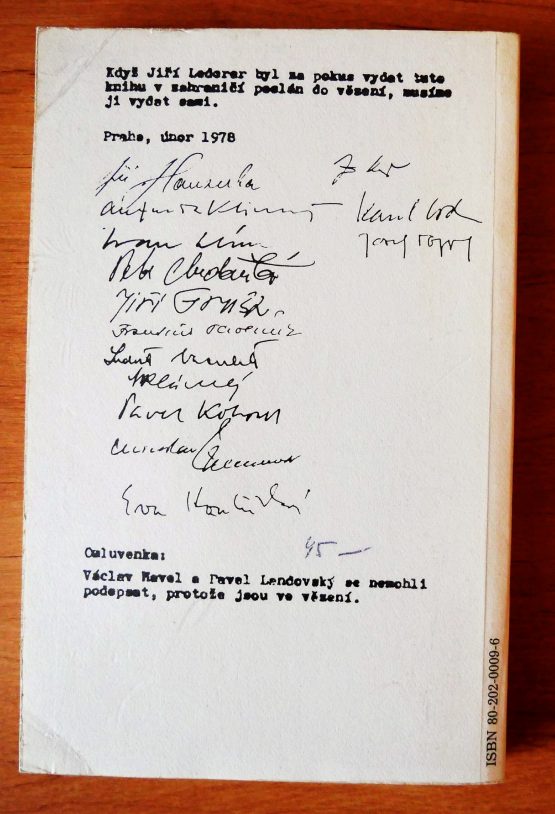 Když Jiří Lederer byl za pokus vydat tuto
knihu v zahraničí poslán do vězení, musíme
ji vydat sami.
Praha, únor 1978
Jiří Hanzelka
Ivan Klíma
Petr Chudožilov
Jiří Gruša
Ludvík Vaculík
Pavel Kohout
Miroslav
Eva Kantůrková
Karel
Josef Topol
Omluvenka:
45 —
Václav Havel a Pavel Landovský se nemohli
podepsat, protože jsou ve vězení.
ISBN 80-202-0009-6